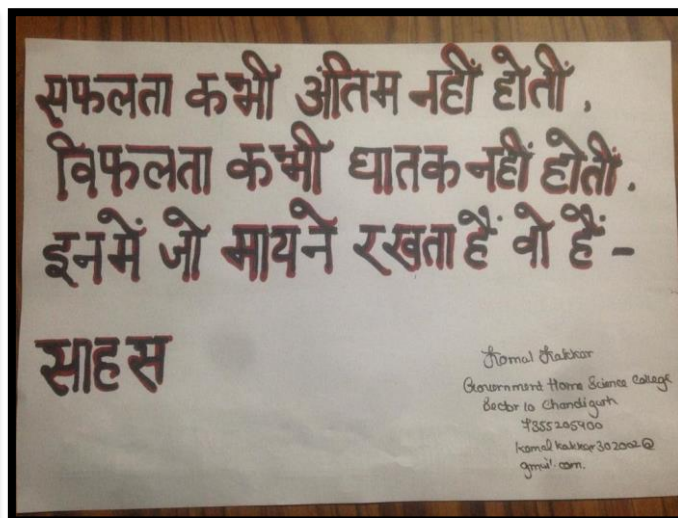 सफलता कभी अंतिम नहीं होतीं .
विफलता कभी घातक नहीं होतीं .
इनमें जो मायने रखता हैं वो हैं -
साहस
Komal Kakkar
Government Home Science College
Sector 10 Chandigarh
7355205400
komalkakkar302002@
gmail.com.